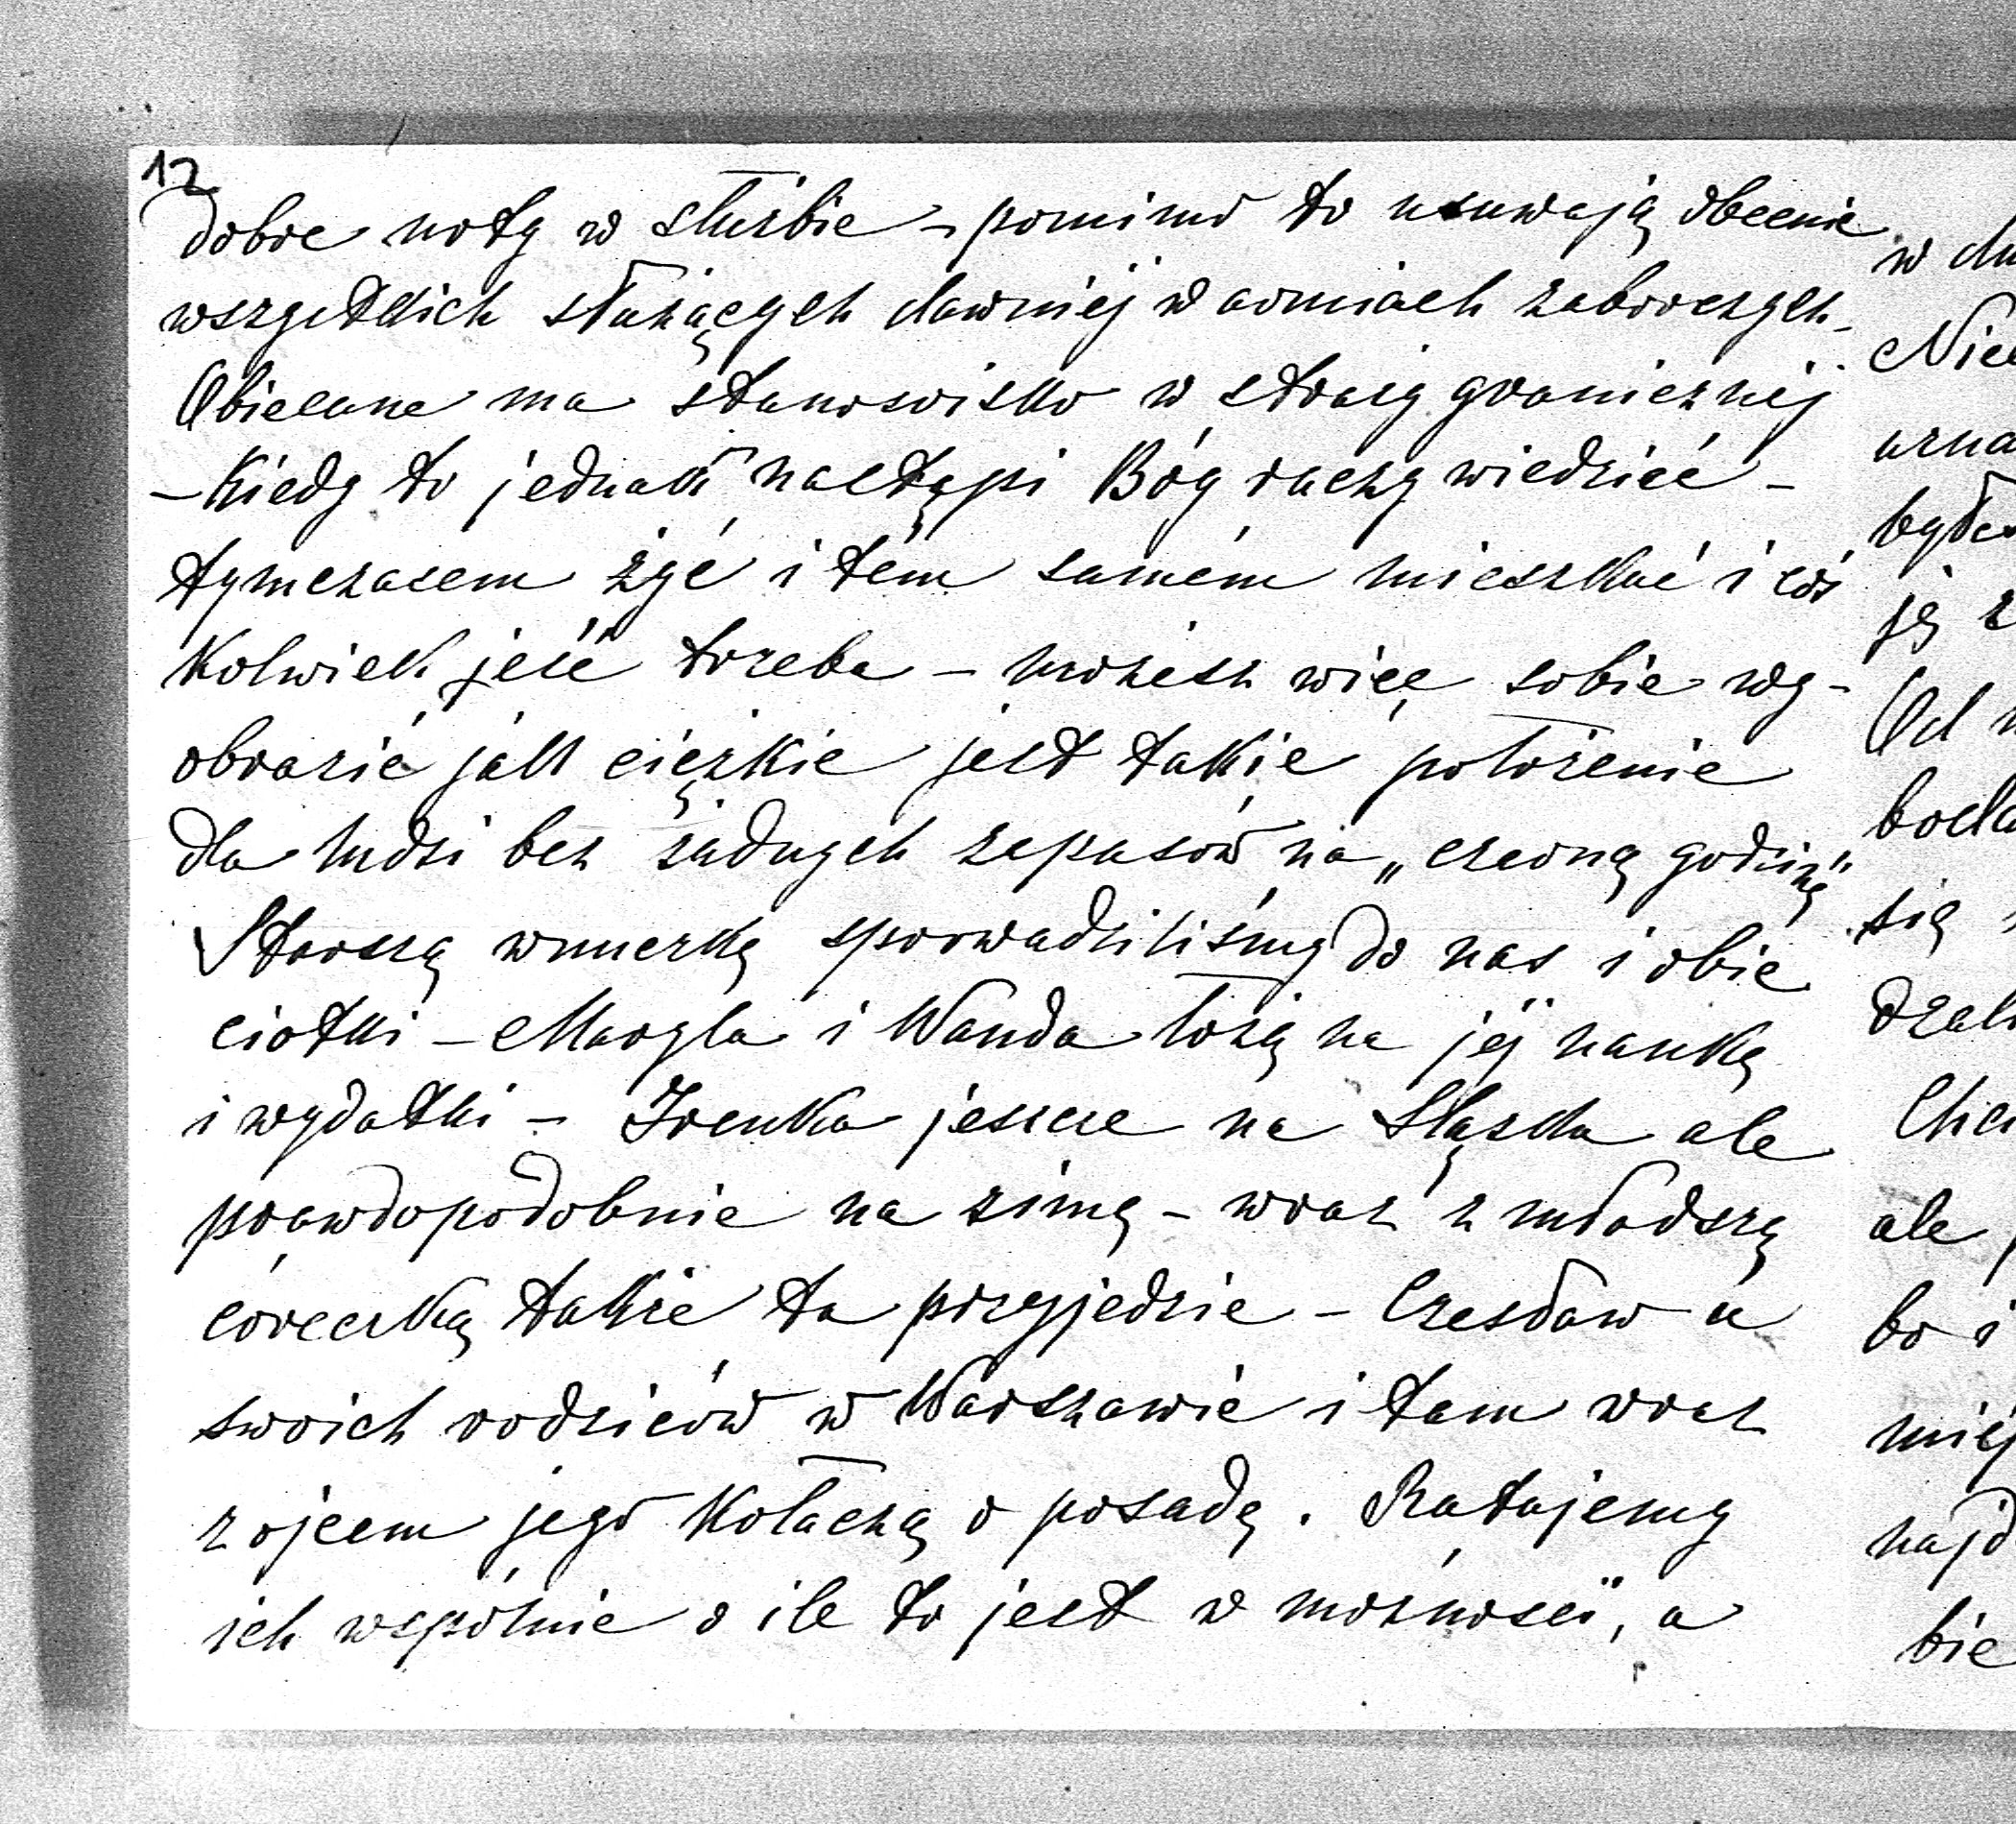 12
dobre noty w służbie – pomimo to usuwają obecnie
wszystkich służących dawniej w armiach zaborczych –
Obiecane ma stanowisko w straży granicznej
– Kiedy to jednak nastąpi Bóg raczy wiedzieć –
tymczasem żyć i tém samém mieszkać i coś
kolwiek jeść trzeba – możesz więc sobie wy-
obrazić jak ciężkie jest takie położenie
dla ludzi bez żadnych zapasów na „czarną godzinę"
Starszą wnuczkę sprowadziliśmy do nas i obie
ciotki – Maryla i Wanda łożą na jéj naukę
i wydatki – Irenka jeszcze na Śląsku ale
prawdopodobnie na zimę – wraz z młodszą
córeczką także tu przyjedzie – Czesław u
swoich rodziców w Warszawie i tam wraz
z ojcem jego kołaczą o posadę. Ratujemy
ich wspólnie o ile to jest w możności, a
w
ale
bo i
się